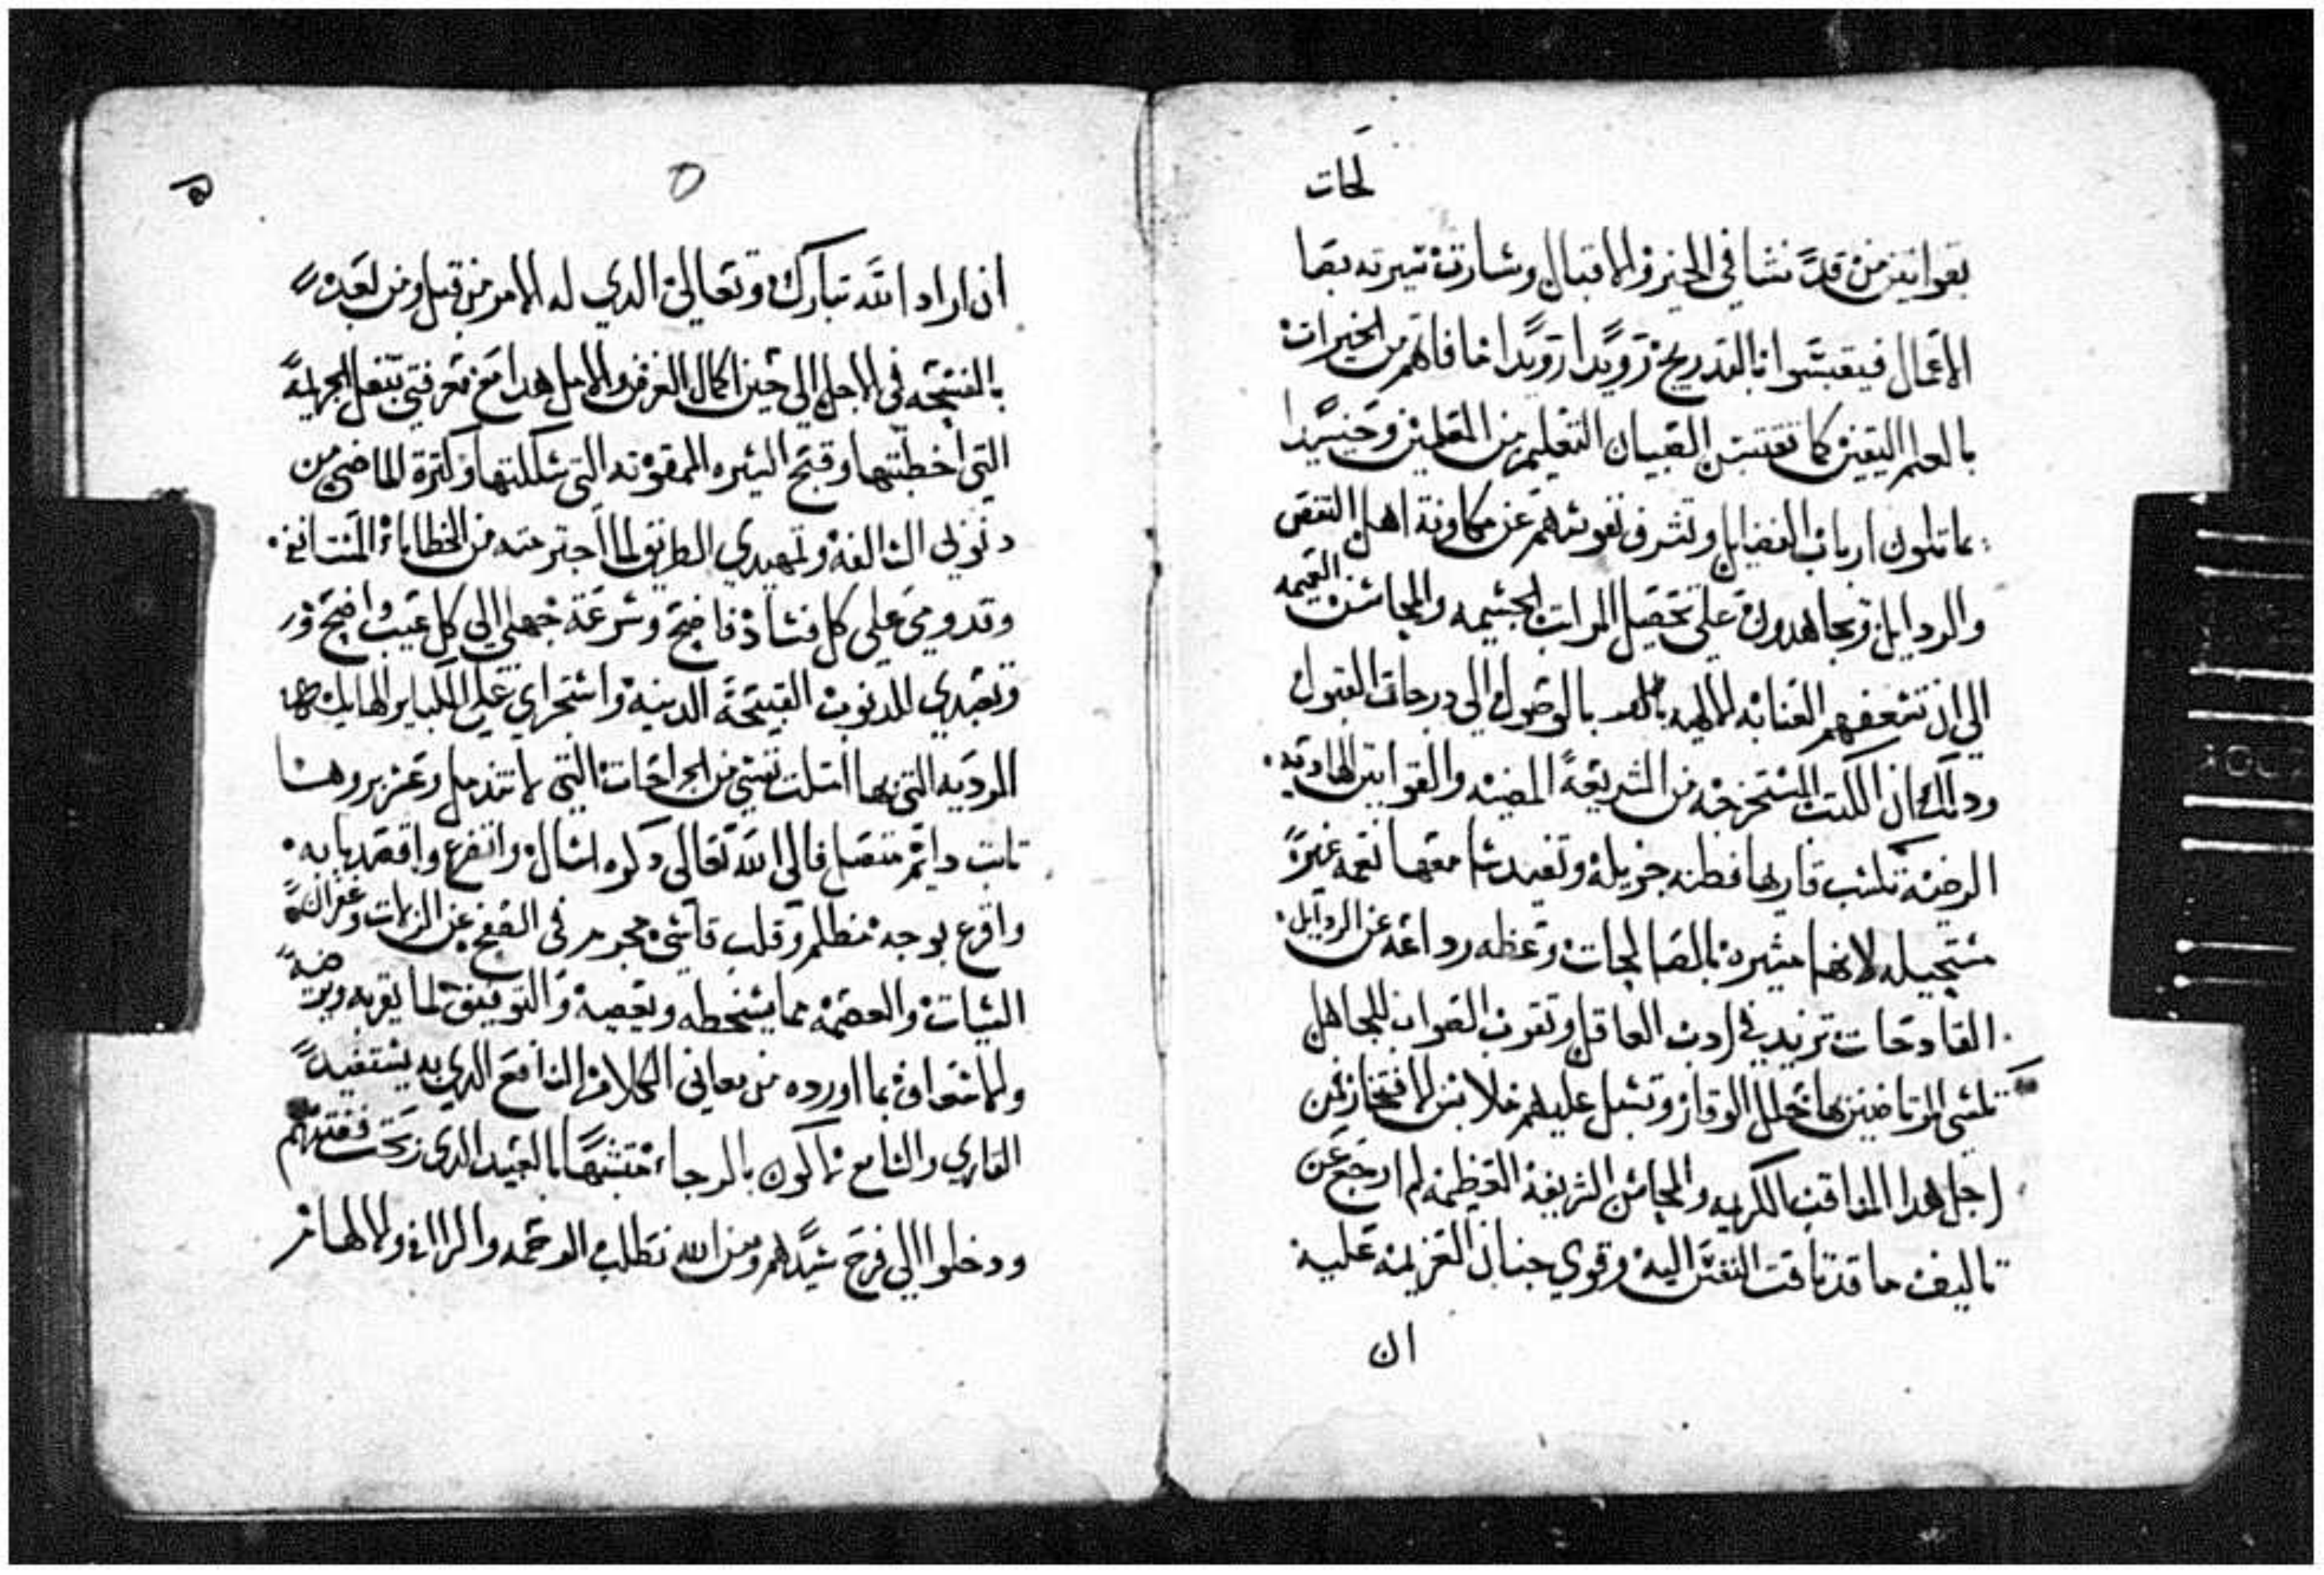 لحات
بقوانين من قد نشا في الخير والاقبال وسارت سيرته بصا
الاعمال فيقتبسوا بالتدريج رويدا رويدا ما فاتهم من الخيرات
بالعلم اليقين كما تقتبس الصبيان التعليم من المعلمين وحينيدا
يماتلون ارباب الفضايل وتشرف نفوسهم عن مكاونة اهل النقص
والردايل ويجاهدون على تحصيل المراتب الجسيمه والمحاسن العميمه
الي ان تسعفهم العنايه الالهيه بالوصول الي درجات القبول
ودالك ان الكتب المستخرجه من الشريعة المضيه والقوانين الهاديه
المرضيه تكسب قاريها فطنه جزيله وتفيد سامعها نعمه غير
مستحيله لانها مشيره بالصالحات وعظه رداعه عن الردايل
القادحات تزيد في ادب العاقل وتقرب الصواب للجاهل
تكسي المرتاضين بها حلل الوقار وتسبل عليهم ملابس الافتخار فمن
اجل هدا المناقب الكريمه والمحاسن الشريفة العظيمه لم ارجع عن
تاليف ما قد تاقت النفس اليه وقوي جنان العزيمه عليه
ان
٥
ان اراد الله تبارك وتعالي الدي له الامر من قبل ومن بعد
بالفسحه في الاجل الي حين اكمال الغرض والامل هدا مع معرفتي بثقل الجريمة
التي اخطيتها وقبح السيره الممقوته التي سلكتها وكترة الماضي من
دنوبي السالفة وتمهيدي الطريق لما اجترحته من الخطاياء المستانفه
وتدومي علي كل فساد فاضح وسرعة جهلي الي كل عيب واضح
وتعبدي للدنوب القبيحة الدنيه واستجراي علي الكباير الهايله
المرديه التي بها امتلت نفسي من الجراحات التي لا تندمل وعز بروها
تابت دايم متصل فالي الله تعالي دكره اسال واتضرع واقصد بابه
واقرع بوجه مظلم وقلب قاسي مجرم في الصفح عن الزلات وغفران
السيات والعصمه مما يسخطه ويغضبه والتوفيق لما يقربه ويرضيه
والاسعاف بما اورده من معاني الكلام النافع الدي به يستفيد
القاري والسامع لاكون بالرجاء متشبها بالعبيد الدي ربحت فضتهم
ودخلوا الي فرح سيدهم ومن الله نطلب الرحمه والرافه والالهام